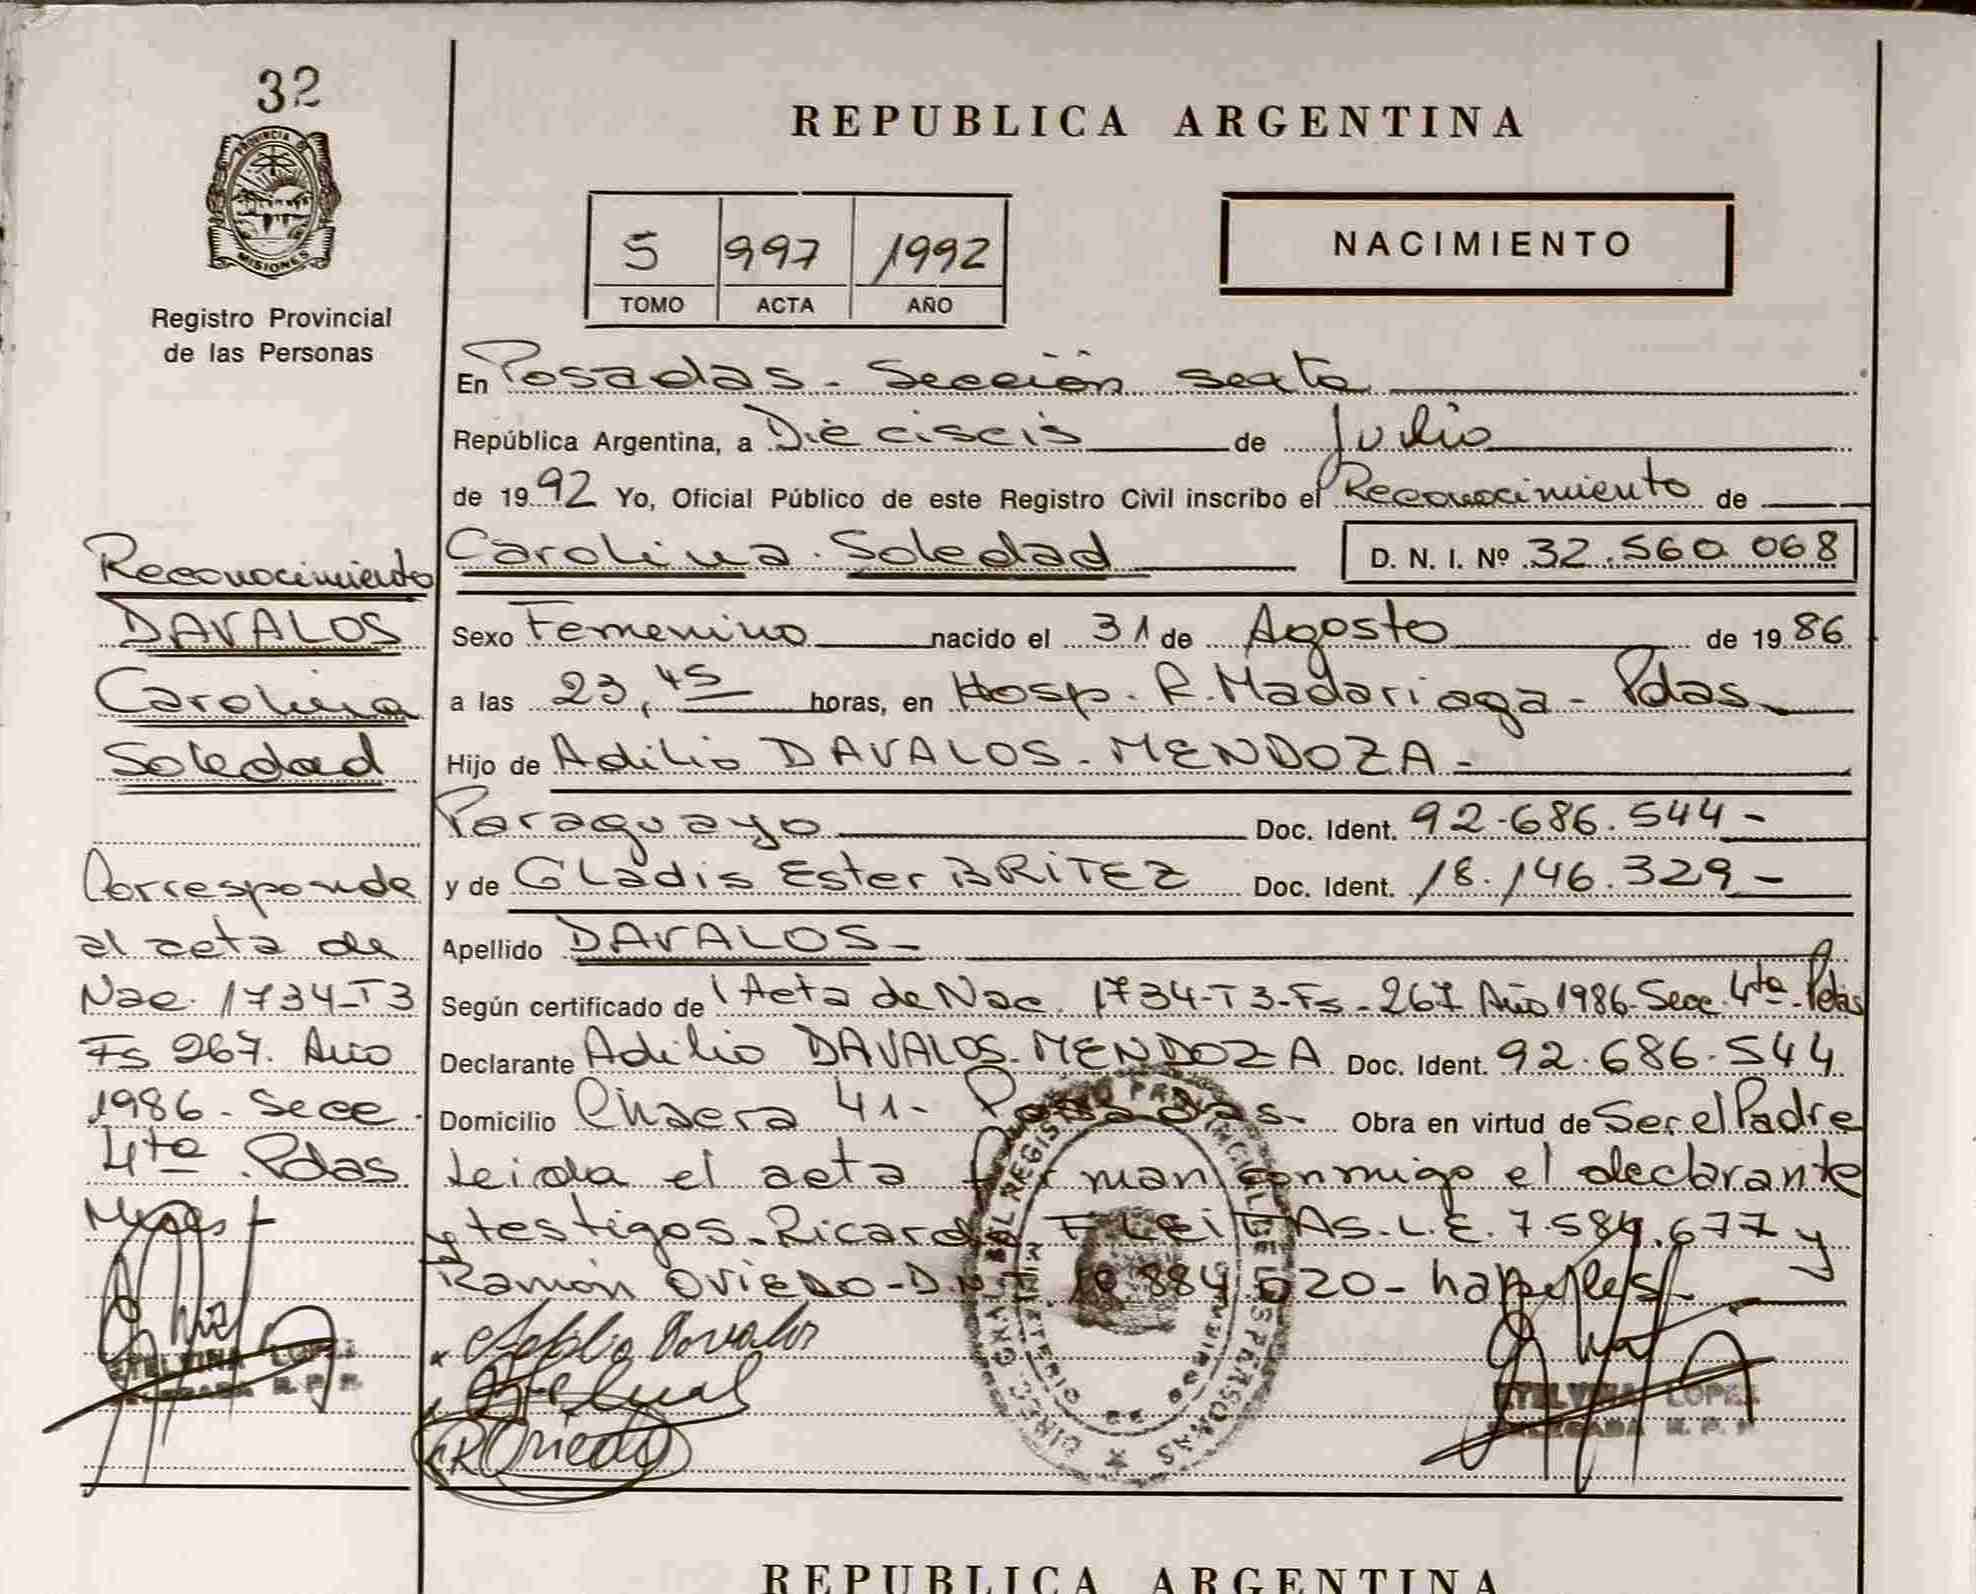 32
PROVINCIA D
MISIONES
Registro Provincial
de las Personas
Reconocimiento
DAVALOS
Carolina
Soledad
Corresponde
al acta de
Nac. 1734-T3
Fs 267. Año
1986 - Secc.
4ta . Pdas
Mnes
ETELVINA LOPEZ
DELEGADA R. P. P.
REPUBLICA ARGENTINA
5 997 1992
TOMO ACTA AÑO
NACIMIENTO
En Posadas - Sección sexta
República Argentina, a Dieciseis de Julio
de 19 92 Yo, Oficial Público de este Registro Civil inscribo el Reconocimiento de
Carolina Soledad D. N. I. Nº 32.560.068
Sexo Femenino nacido el 31 de Agosto de 19 86
a las 23,45 horas, en Hosp. R. Madariaga - Pdas
Hijo de Adilio DAVALOS - MENDOZA -
Paraguayo Doc. Ident. 92.686.544 -
y de Gladis Ester BRITEZ Doc. Ident. 18.146.329 -
Apellido DAVALOS -
Según certificado de Acta de Nac. 1734-T3-Fs - 267 Año 1986-Secc. 4ta - Pdas
Declarante Adilio DAVALOS - MENDOZA Doc. Ident. 92.686.544
Domicilio Chacra 41 - Posadas - Obra en virtud de Ser el Padre
Leida el acta firman conmigo el declarante
y testigos - Ricardo FLEITAS - L.E. 7.584.677 y
Ramón OVIEDO - D.N.I. 884.020 - habiles -
Adilio Davalos
R Oviedo
ETELVINA LOPEZ
DELEGADA R. P. P.
REPUBLICA ARGENTINA